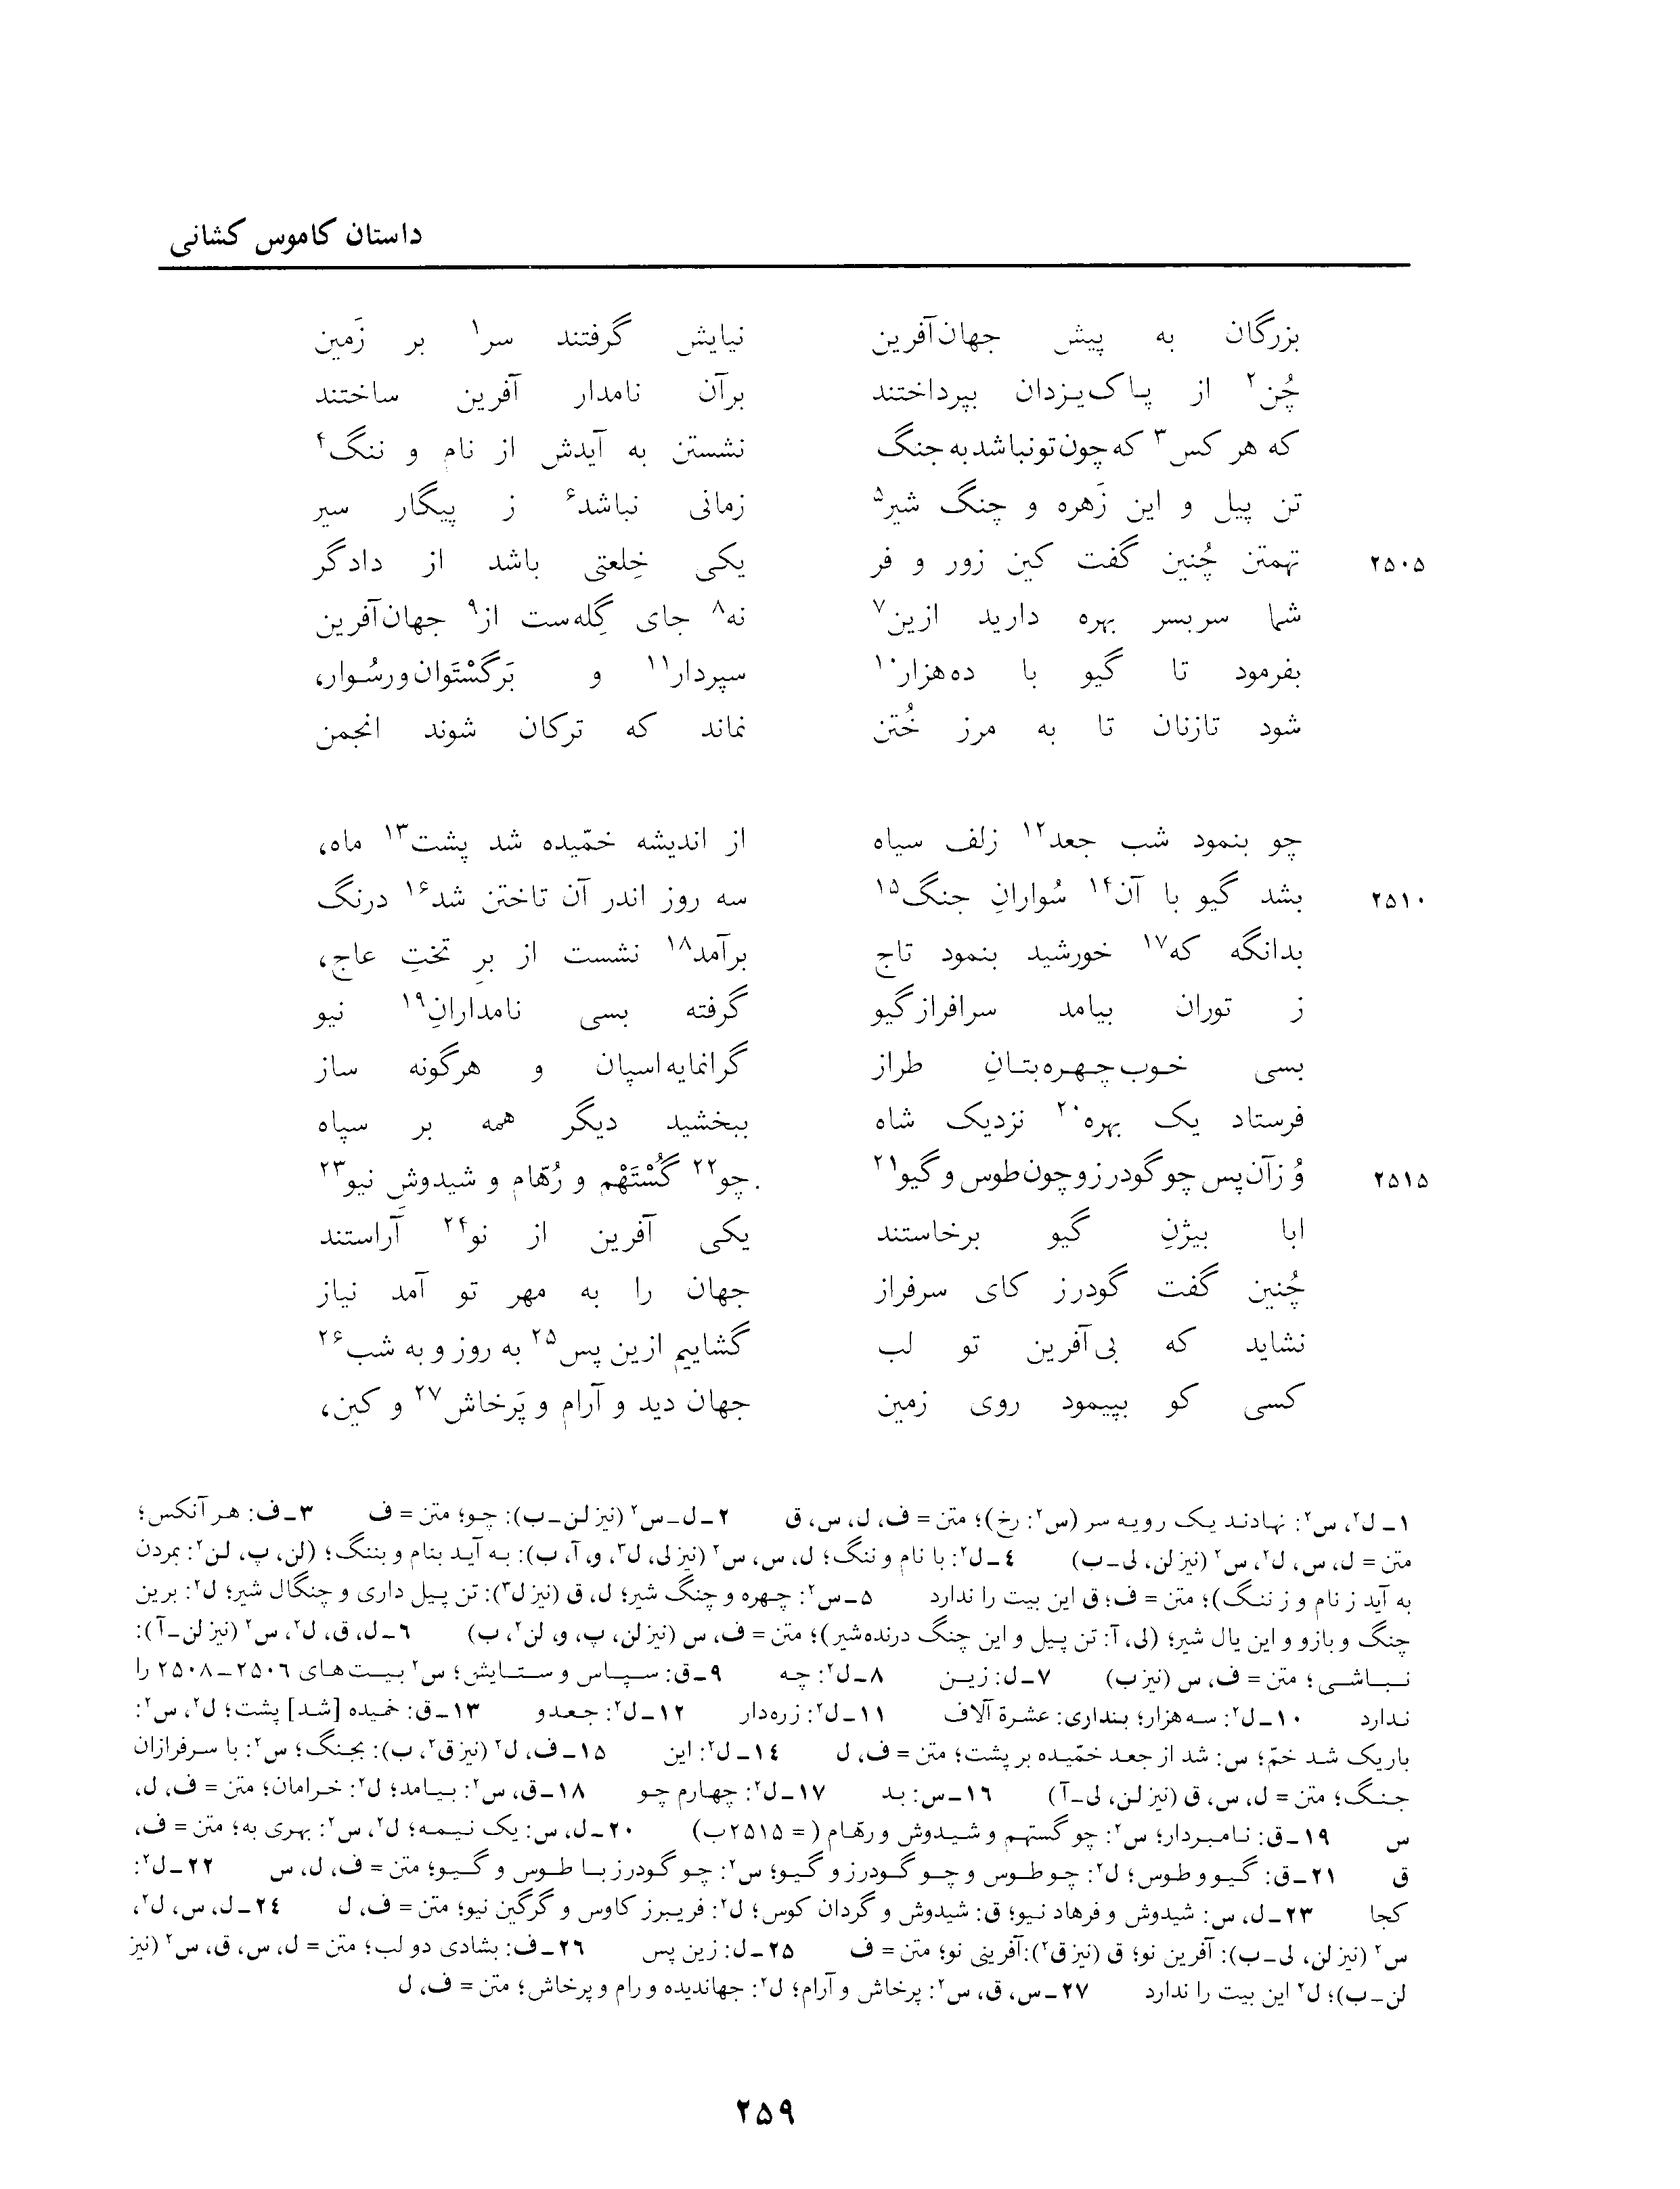 داستان کاموس کشانی
بزرگان به پیش جهان‌آفرین نیایش گرفتند سر۱ بر زَمین
چُن۲ از پاک‌یزدان بپرداختند برآن نامدار آفرین ساختند
که هر کس۳ که چون تو نباشد به جنگ نشستن به آیدش از نام و ننگ۴
تن پیل و این زَهره و چنگ شیر۵ زمانی نباشد۶ ز پیگار سیر
۲۵۰۵ تهمتن چُنین گفت کین زور و فر یکی خِلعتی باشد از دادگر
شما سربسر بهره دارید ازین۷ نه۸ جای گِله‌ست از۹ جهان‌آفرین
بفرمود تا گیو با ده‌هزار۱۰ سپردار۱۱ و بَرگُسْتَوان‌ورسُوار،
شود تازنان تا به مرز خُتن نماند که ترکان شوند انجمن
چو بنمود شب جعد۱۲ زلف سیاه از اندیشه خمّیده شد پشت۱۳ ماه،
۲۵۱۰ بشد گیو با آن۱۴ سُوارانِ جنگ۱۵ سه روز اندر آن تاختن شد۱۶ درنگ
بدانگه که۱۷ خورشید بنمود تاج برآمد۱۸ نشست از برِ تختِ عاج،
ز توران بیامد سرافراز گیو گرفته بسی نامدارانِ۱۹ نیو
بسی خوب‌چهره‌بتانِ طراز گرانمایه‌اسپان و هرگونه ساز
فرستاد یک بهره۲۰ نزدیک شاه ببخشید دیگر همه بر سپاه
۲۵۱۵ وُ زآن پس چو گودرز و چون طوس و گیو۲۱ چو۲۲ گُسْتَهْم و رُهّام و شیدوشِ نیو۲۳
ابا بیژنِ گیو برخاستند یکی آفرین از نو۲۴ آراستند
چُنین گفت گودرز کای سرفراز جهان را به مهر تو آمد نیاز
نشاید که بی‌آفرین تو لب گشاییم ازین پس۲۵ به روز و به شب۲۶
کسی کو بپیمود روی زمین جهان دید و آرام و پَرخاش۲۷ و کین،
۱ـ ل۲، س۲: نهادند یک رویه سر (س۲: رخ)؛ متن = ف، ل، س، ق ۲ـ ل ـ س۲ (نیز لن ـ ب): چو؛ متن = ف ۳ـ ف: هر آنکس؛
متن = ل، س، ل۲، س۲ (نیز لن، لی ـ ب) ۴ـ ل۲: با نام و ننگ؛ ل، س، س۲ (نیز لی، ل۳، و، آ، ب): به آید بنام و بننگ؛ (لن، پ، لن۲: بمردن
به آید ز نام و ز ننگ)؛ متن = ف؛ ق این بیت را ندارد ۵ـ س۲: چهره و چنگ شیر؛ ل، ق (نیز ل۳): تن پیل داری و چنگال شیر؛ ل۲: برین
چنگ و بازو و این یال شیر؛ (لی، آ: تن پیل و این چنگ درنده‌شیر)؛ متن = ف، س (نیز لن، پ، و، لن۲، ب) ۶ـ ل، ق، ل۲، س۲ (نیز لن ـ آ):
نباشی؛ متن = ف، س (نیز ب) ۷ـ ل: زین ۸ـ ل۲: چه ۹ـ ق: سپاس و ستایش؛ س۲ بیت‌های ۲۵۰۶ـ۲۵۰۸ را
ندارد ۱۰ـ ل۲: سه‌هزار؛ بنداری: عشرة آلاف ۱۱ـ ل۲: زره‌دار ۱۲ـ ل۲: جعدو ۱۳ـ ق: خمیده [شد] پشت؛ ل۲، س۲:
باریک شد خمّ؛ س: شد از جعد خمّیده بر پشت؛ متن = ف، ل ۱۴ـ ل۲: این ۱۵ـ ف، ل۲ (نیز ق۲، ب): بجنگ؛ س۲: با سرفرازان
جنگ؛ متن = ل، س، ق (نیز لن، لی ـ آ) ۱۶ـ س: بد ۱۷ـ ل۲: چهارم چو ۱۸ـ ق، س۲: بیامد؛ ل۲: خرامان؛ متن = ف، ل،
س ۱۹ـ ق: نامبردار؛ س۲: چو گستهم و شیدوش و رهّام (= ۲۵۱۵ب) ۲۰ـ ل، س: یک نیمه؛ ل۲، س۲: بهری به؛ متن = ف،
ق ۲۱ـ ق: گیو و طوس؛ ل۲: چو طوس و چو گودرز و گیو؛ س۲: چو گودرز با طوس و گیو؛ متن = ف، ل، س ۲۲ـ ل۲:
کجا ۲۳ـ ل، س: شیدوش و فرهاد نیو؛ ق: شیدوش و گردان کوس؛ ل۲: فریبرز کاوس و گرگین نیو؛ متن = ف، ل ۲۴ـ ل، س، ل۲،
س۲ (نیز لن، لی ـ ب): آفرین نو؛ ق (نیز ق۲): آفرینی نو؛ متن = ف ۲۵ـ ل: زین پس ۲۶ـ ف: بشادی دو لب؛ متن = ل، س، ق، س۲ (نیز
لن ـ ب)؛ ل۲ این بیت را ندارد ۲۷ـ س، ق، س۲: پرخاش و آرام؛ ل۲: جهاندیده و رام و پرخاش؛ متن = ف، ل
۲۵۹